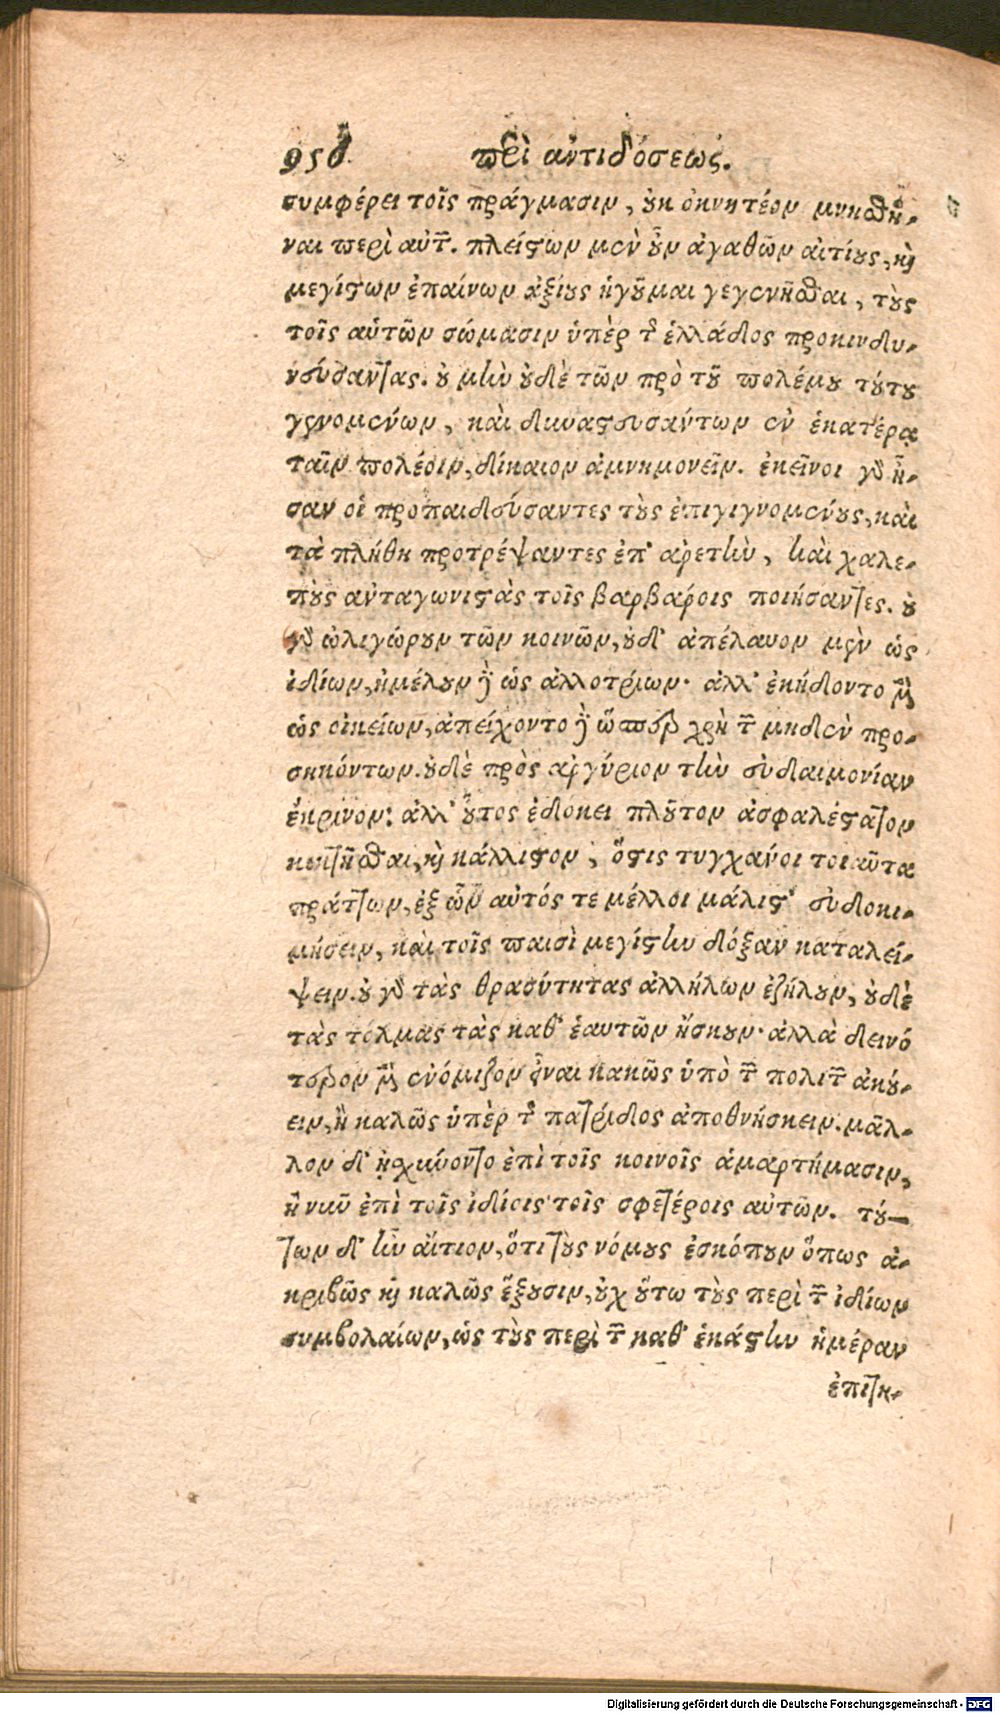 950 περὶ ἀντιδόσεως.
συμφέρει τοῖς πράγμασιν, οὐκ ὀκνητέον μνησθῆ-
ναι περὶ αὐτῶν. πλείστων μὲν οὖν ἀγαθῶν αἰτίους, καὶ
μεγίστων ἐπαίνων ἀξίους ἡγοῦμαι γεγενῆσθαι, τοὺς
τοῖς αὑτῶν σώμασιν ὑπὲρ τῆς ἑλλάδος προκινδυ-
νεύσαντας. οὐ μὴν οὐδὲ τῶν πρὸ τοῦ πολέμου τούτου
γενομένων, καὶ δυναστευσάντων ἐν ἑκατέρᾳ
ταῖν πολέοιν, δίκαιον ἀμνημονεῖν. ἐκεῖνοι γὰρ ἦ-
σαν οἱ προπαιδεύσαντες τοὺς ἐπιγιγνομένους, καὶ
τὰ πλήθη προτρέψαντες ἐπ' ἀρετὴν, καὶ χαλε-
ποὺς ἀνταγωνιστὰς τοῖς βαρβάροις ποιήσαντες. οὐ
γὰρ ὠλιγώρουν τῶν κοινῶν, οὐδ' ἀπέλαυον μὲν ὡς
ἰδίων, ἠμέλουν δὲ ὡς ἀλλοτρίων· ἀλλ' ἐκήδοντο μὲν
ὡς οἰκείων, ἀπείχοντο δὲ ὥσπερ χρὴ τῶν μηδὲν προ-
σηκόντων. οὐδὲ πρὸς ἀργύριον τὴν εὐδαιμονίαν
ἔκρινον: ἀλλ' οὗτος ἐδόκει πλοῦτον ἀσφαλέστατον
κεκτῆσθαι, καὶ κάλλιστον, ὅστις τυγχάνοι τοιαῦτα
πράττων, ἐξ ὧν αὐτός τε μέλλοι μάλιστ' εὐδοκι-
μήσειν, καὶ τοῖς παισὶ μεγίστην δόξαν καταλεί-
ψειν. οὐ γὰρ τὰς θρασύτητας ἀλλήλων ἐζήλουν, οὐδὲ
τὰς τόλμας τὰς καθ' ἑαυτῶν ἤσκουν· ἀλλὰ δεινό
τερον μὲν ἐνόμιζον εἶναι κακῶς ὑπὸ τῶν πολιτῶν ἀκού-
ειν, ἢ καλῶς ὑπὲρ τῆς πατρίδος ἀποθνήσκειν. μᾶλ-
λον δ' ᾐσχύνοντο ἐπὶ τοῖς κοινοῖς ἁμαρτήμασιν,
ἢ νῦν ἐπὶ τοῖς ἰδίοις τοῖς σφετέροις αὐτῶν. τού-
των δ' ἦν αἴτιον, ὅτι τοὺς νόμους ἐσκόπουν ὅπως ἀ-
κριβῶς καὶ καλῶς ἕξουσιν, οὐχ οὕτω τοὺς περὶ τῶν ἰδίων
συμβολαίων, ὡς τοὺς περὶ τῶν καθ' ἑκάστην ἡμέραν
ἐπιτη-
Digitalisierung gefördert durch die Deutsche Forschungsgemeinschaft - DFG